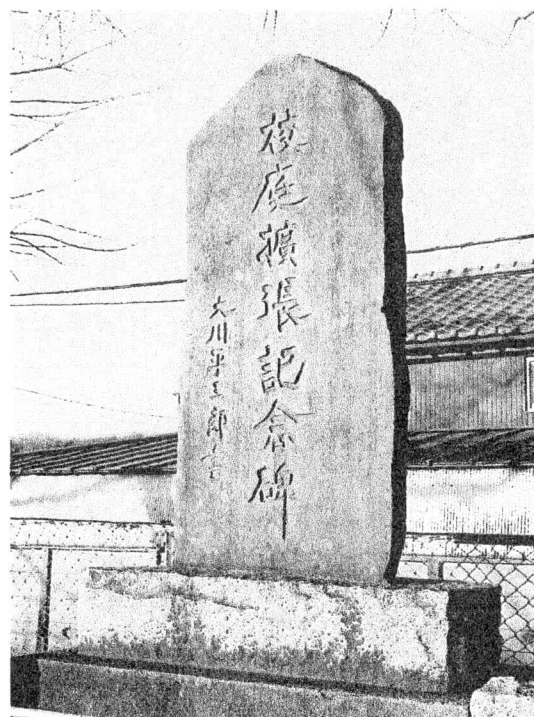 校庭擴張記念碑
大川平三郎書